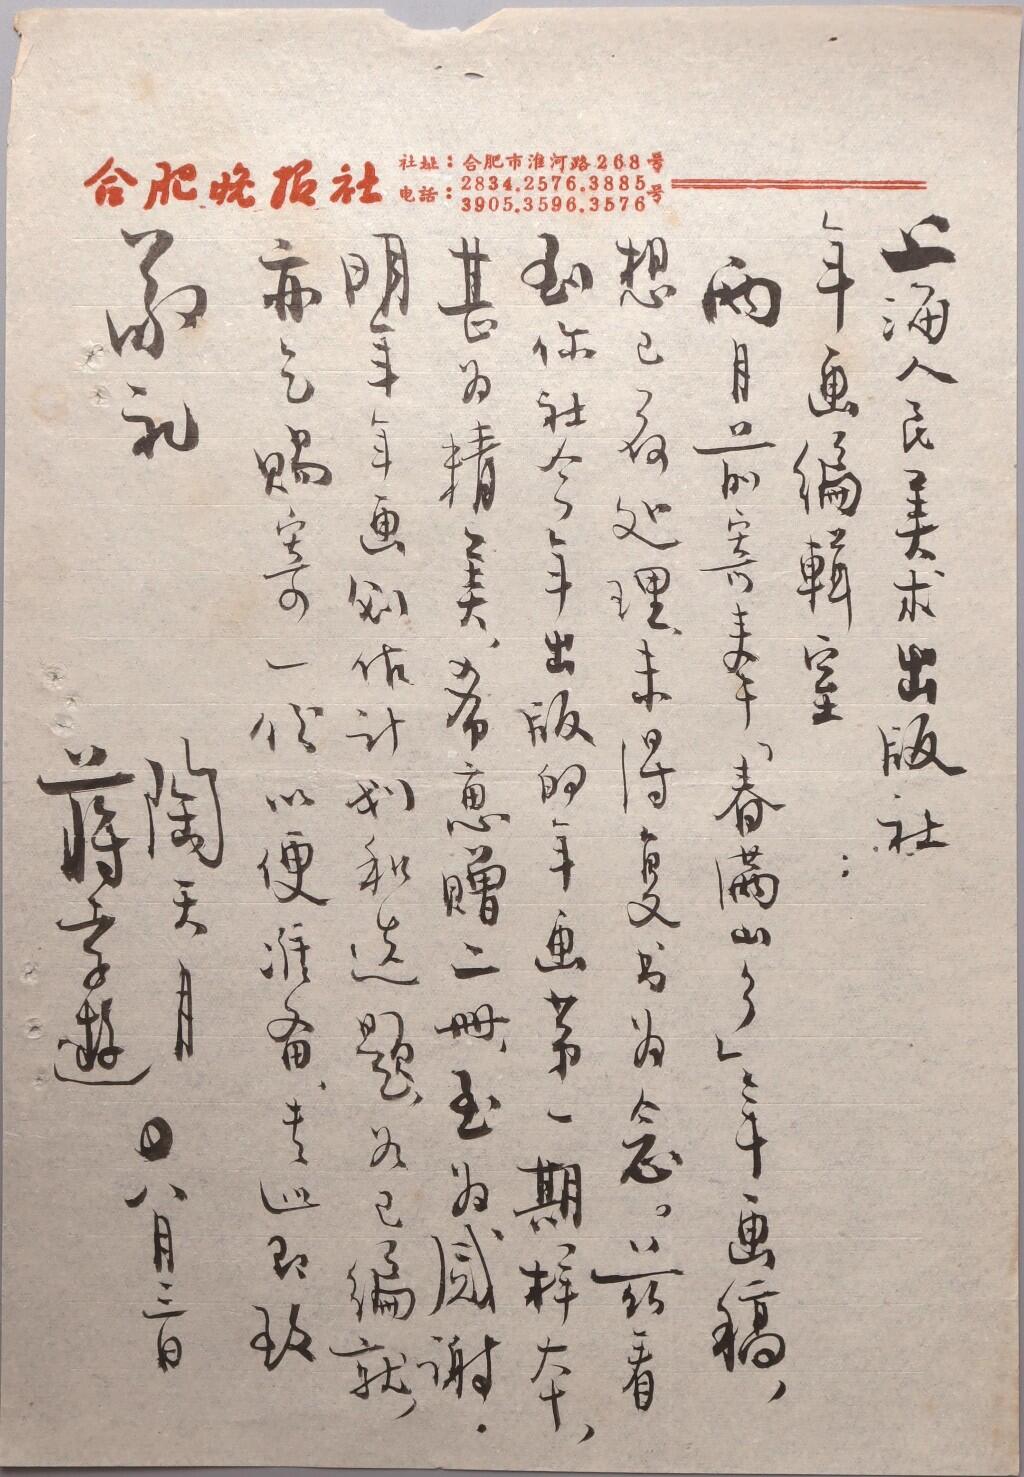 合肥晚报社
社址：合肥市淮河路268号
电話：2834.2576.3885
3905.3596.3576号
上海人民美术出版社
年画编輯室：
两月前寄来“春满山乡”年画稿，
想已存处理，未得复书为念。兹看
到你社今年出版的年画第一期样本，
甚为精美，希惠赠二册，至为感谢．
明年年画创作计划和选题，如已编就，
亦乞赐寄一份以便准备、专此即致
敬礼
陶天月
蒋孝遊
八月三日